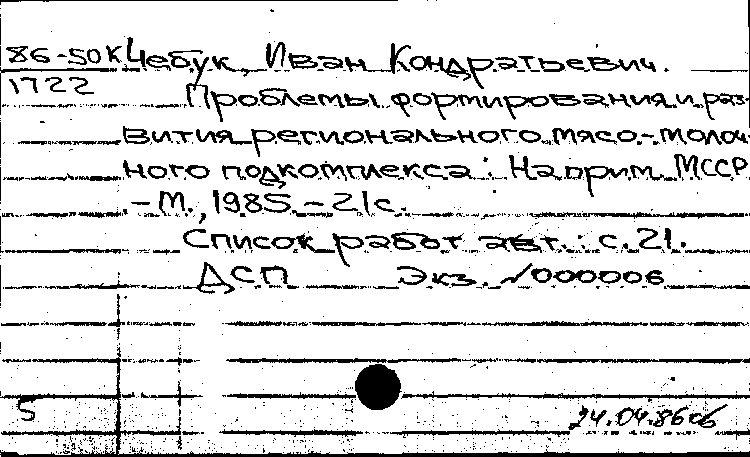 86-50к Чебук, Иван Кондратьевич.
1722
Проблемы формирования и раз-
вития регионального мясо-молоч-
ного подкомплекса: На прим. МССР.
-М., 1985.-21с.
Список работ авт.: с.21.
ДСП Экз. №000006
5
24.04.86